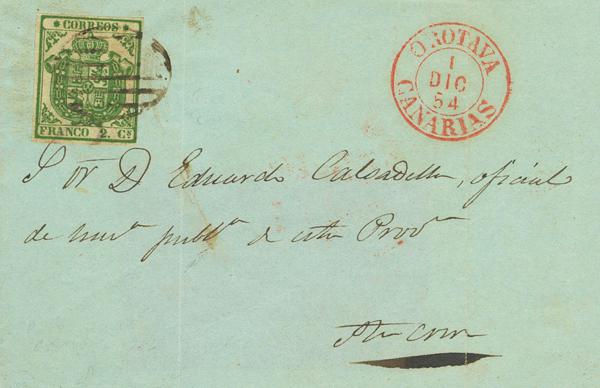 CORREOS
FRANCO 2. Cs
OROTAVA
1
DIC
54
CANARIAS
Sor D Eduardo Calsadilla, oficial
de publca de esta Provca
Sta Cruz